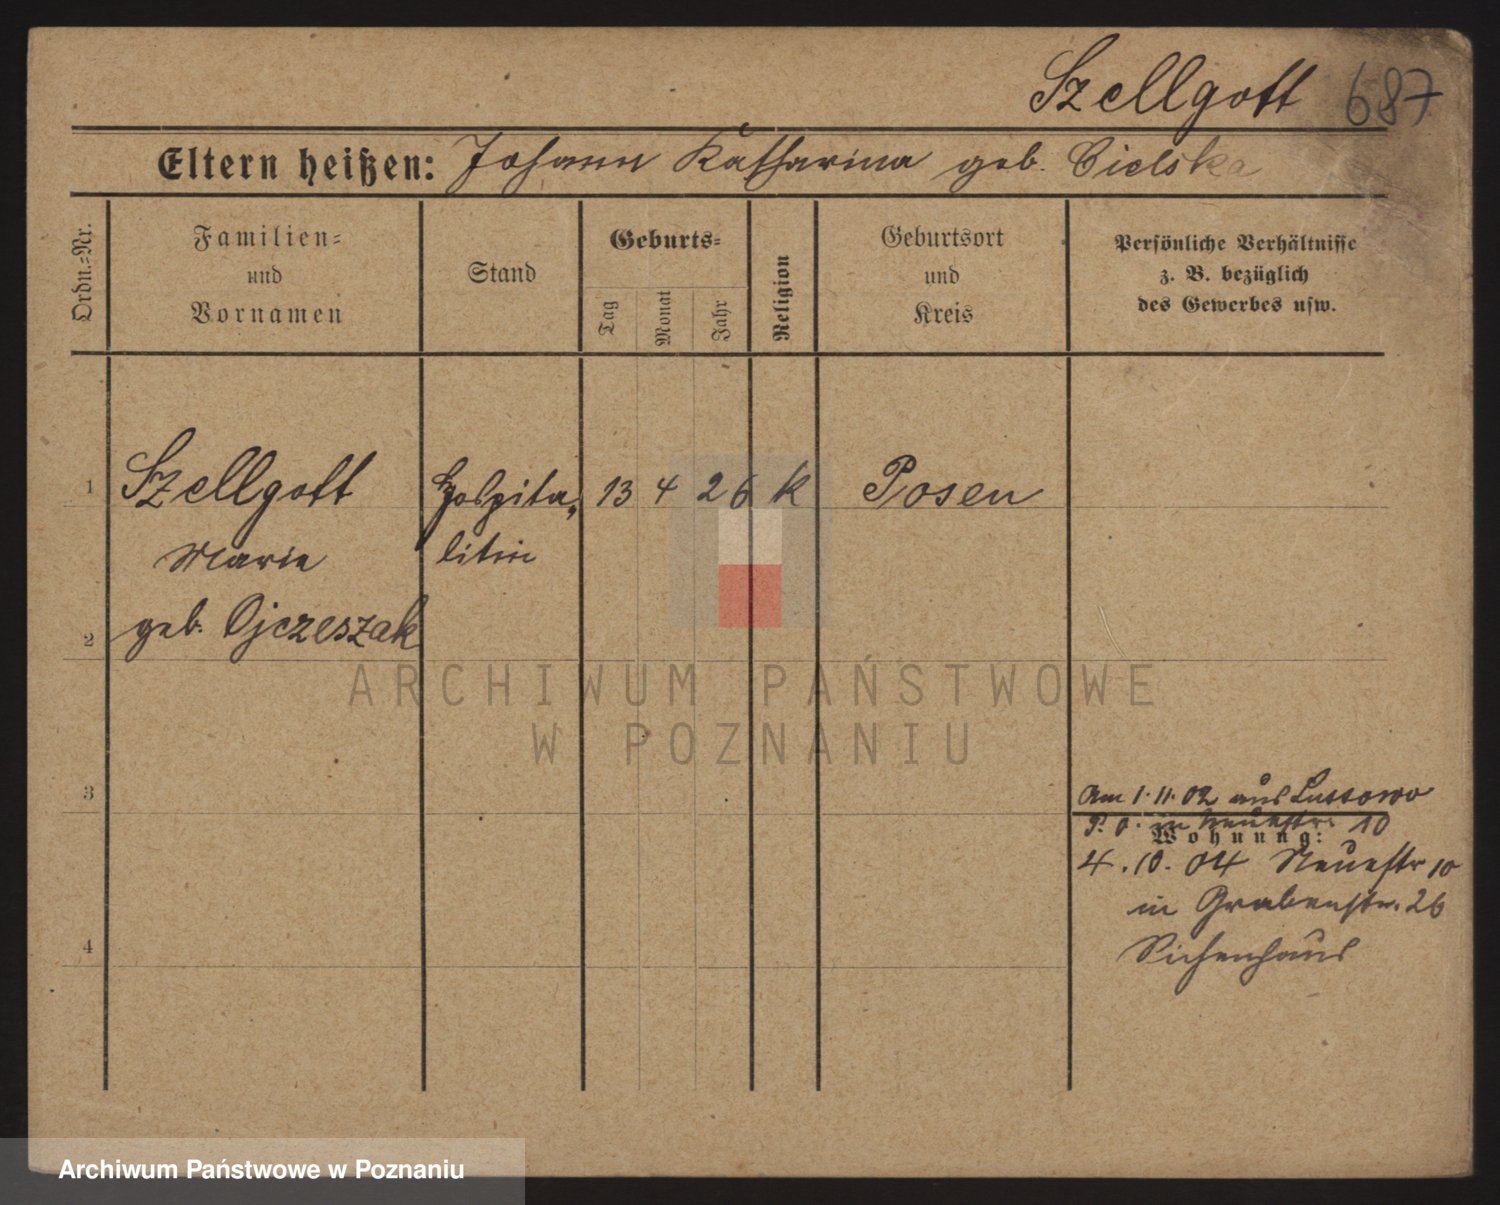 Szellgott 687
Eltern heißen: Johann Katharina geb. Cielska
Ordn.=Nr.
Familien=
und
Vornamen
Stand
Geburts=
Tag
Monat
Jahr
Religion
Geburtsort
und
Kreis
Persönliche Verhältnisse
z. B. bezüglich
des Gewerbes usw.
1 Szellgott Hospita= 13 4 26 k Posen
Marie litin
2 geb. Ojczeszak
ARCHIWUM PAŃSTWOWE
W POZNANIU
3 Am 1.11.02 aus Lussowo
P. O. in Neuestr. 10
Wohnung:
4.10.04 Neuestr 10
in Grabenstr. 26
4 Sichenhaus
Archiwum Państwowe w Poznaniu